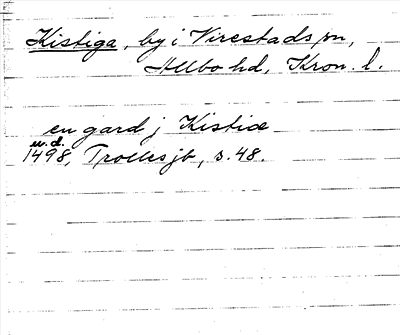 Kistiga, by i Virestads sn,
Allbo hd, Kron. l.
en gard j Kistiæ
u.d.
1498, Trollesjb, s. 48.